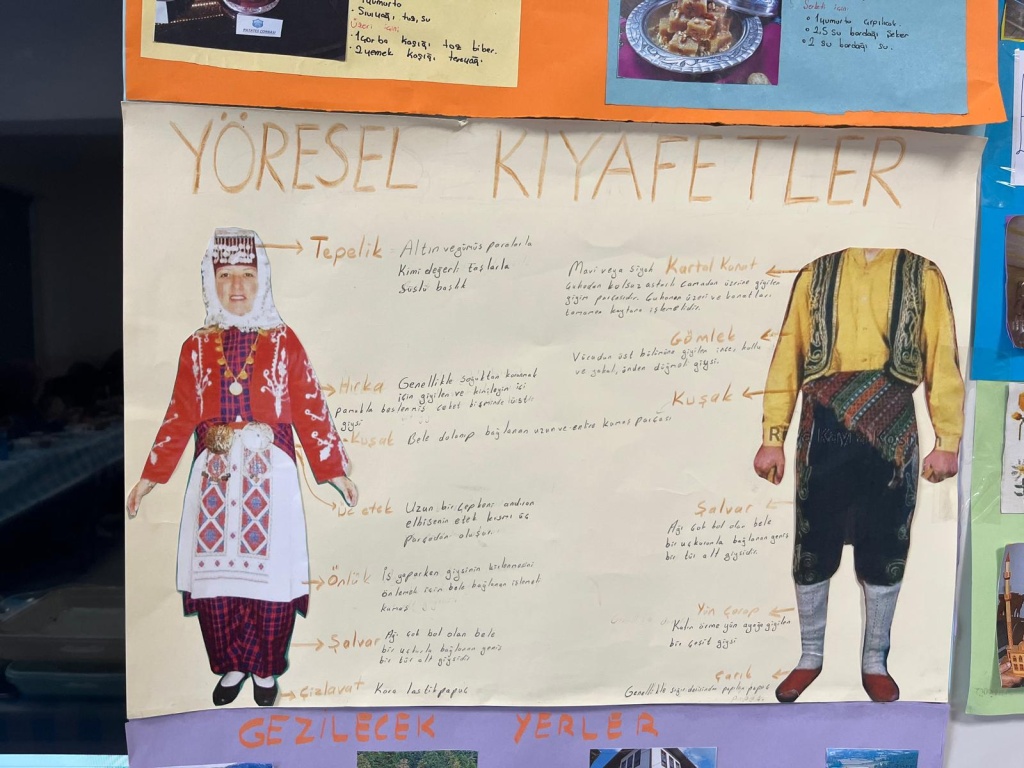 yumurta
Sıvıyağı, tuz, su
Üzeri için:
• 1 çorba kaşığı toz biber.
• 2 yemek kaşığı tereyağı.
Şerbeti için:
• 1 yumurta çırpılcak.
• 2.5 su bardağı şeker
• 2 su bardağı su.
YÖRESEL KIYAFETLER
Tepelik
Altın ve gümüş paralarla
Kimi değerli taşlarla
Süslü başlık
Hırka
Genellikle soğuktan korunmak
için giyilen ve kimileyin içi
pamukla beslenmiş ceket biçiminde üst
giysi
Kuşak
Bele dolanıp bağlanan uzun ve enli kumaş parçası
Üç etek
Uzun bir çepkeni andıran
elbisenin etek kısmı üç
parçadan oluşur.
Önlük
İş yaparken giysinin kirlenmesini
önlemek için bele bağlanan işlemeli
kumaş
Şalvar
Ağı çok bol olan bele
bir uçkurla bağlanan geniş
bir tür alt giysidir
Çizlavat
Kara lastik papuç
Kartal Kanat
Mavi veya Siyah
Çuhadan kolsuz astarlı Camadan üzerine giyilen
giyim parçasıdır. Çuhanın üzeri ve kanatları
tamamen kaytan işlemelidir.
Gömlek
Vücudun üst bölümüne giyilen ince, kollu
ve yakalı, önden düğmeli giysi.
Kuşak
Şalvar
Ağı çok bol olan bele
bir uçkurla bağlanan geniş
bir tür alt giysidir.
Yün Çorap
Kalın örme yün ayağa giyilen
bir çeşit giysi
Çarık
Genellikle sığır derisinden yapılan papuç
GEZİLECEK YERLER